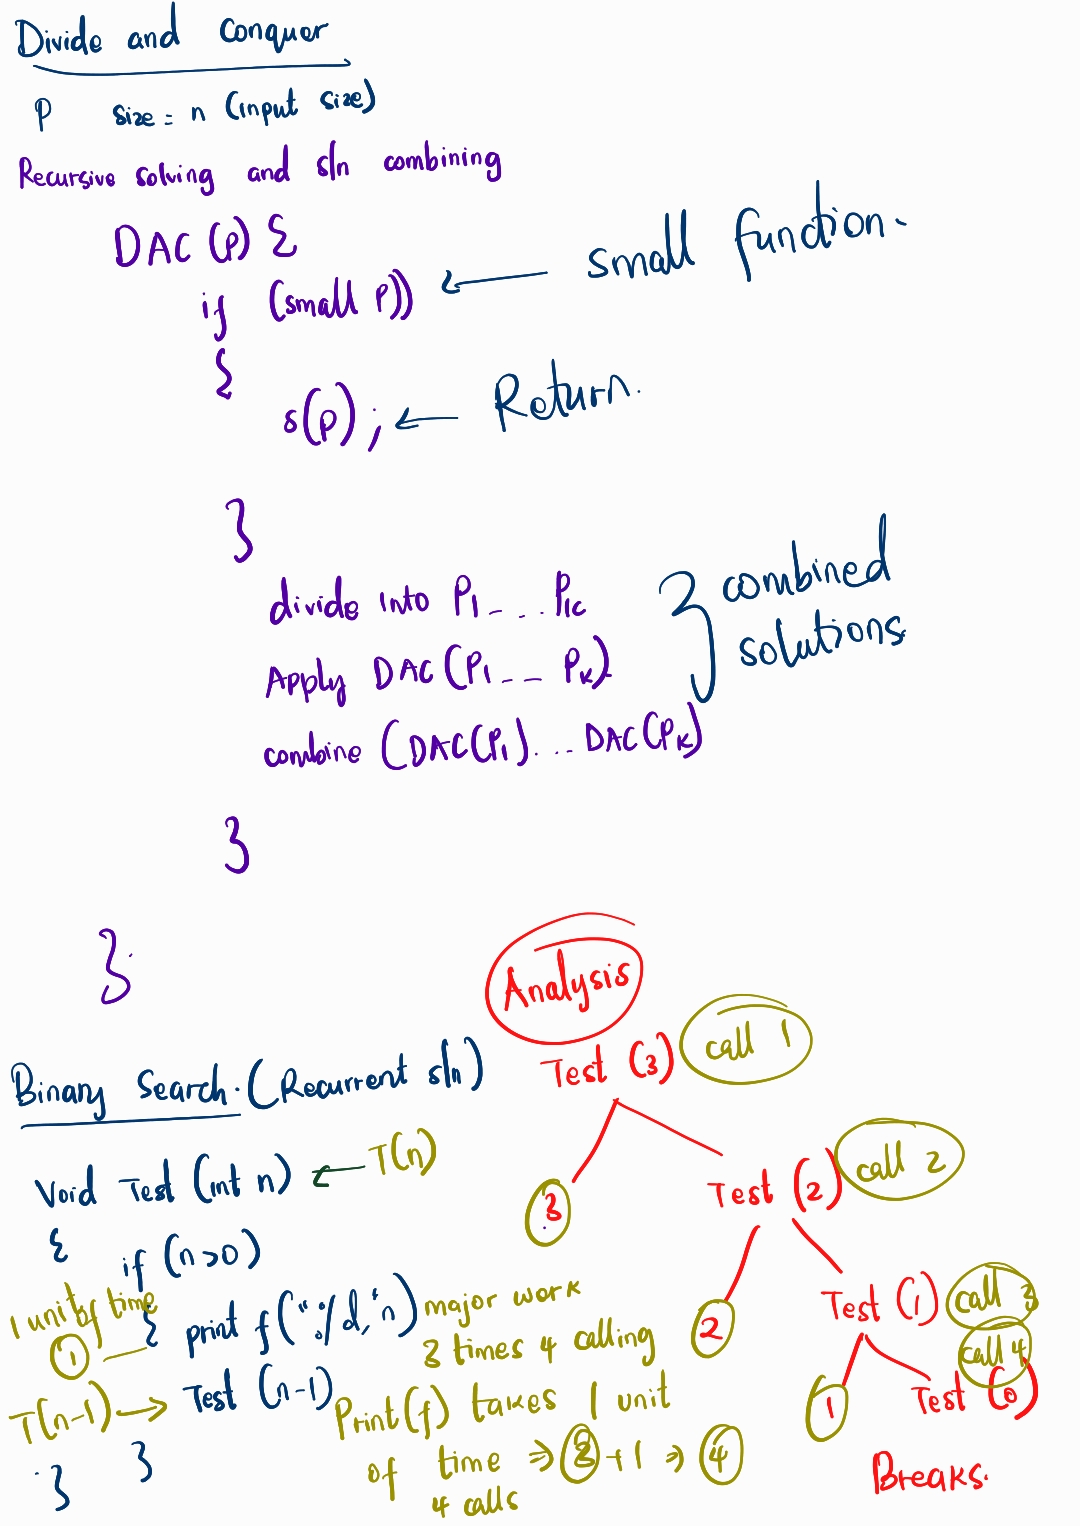 Divide and Conquer
P size = n (input size)
Recursive solving and sln combining
DAC (P) {
if (small P)) ← small function.
{
s(p); ← Return.
}
divide into P1 - - . Pk
Apply DAC (P1 - - - Pk)
combine (DAC(P1) . . . DAC(Pk)
} combined
solutions.
}
}
Analysis
Binary Search. (Recurrent sln)
Void Test (int n) ← T(n)
{ if (n>0)
1 unit of time
① { printf("%d,"n) major work
3 times 4 calling
T(n-1) → Test (n-1)
}
}
Print(f) takes 1 unit
of time ⇒ ③ +1 ⇒ ④
4 calls
Test (3) call 1
3 Test (2) call 2
2 Test (1) call 3
call 4
1 Test (0)
Breaks.